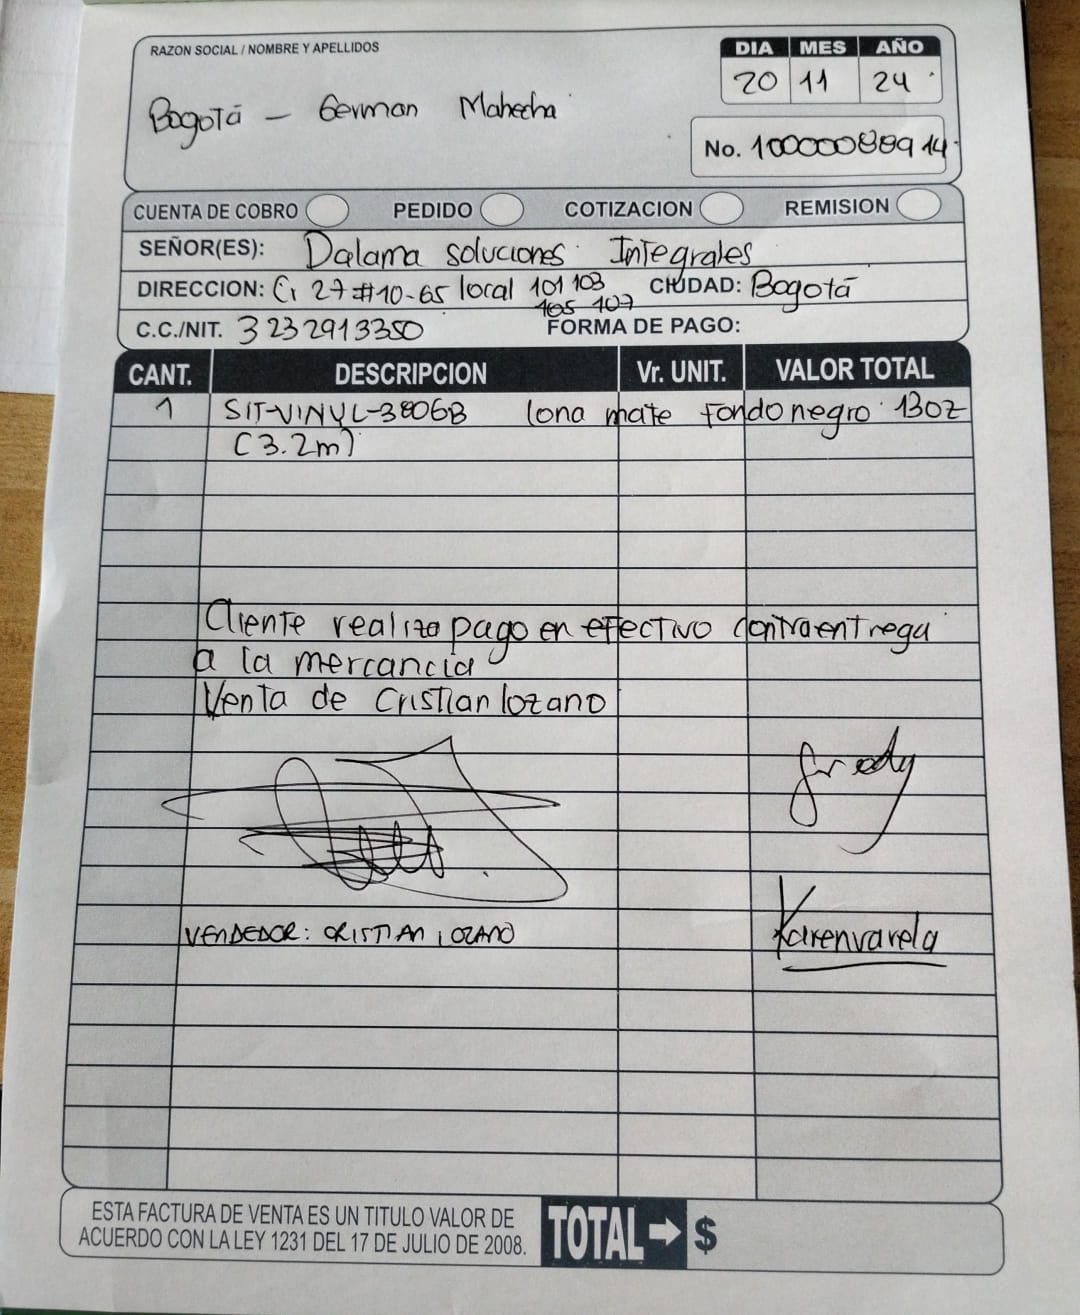 RAZON SOCIAL / NOMBRE Y APELLIDOS
DIA MES AÑO
20 11 24
Bogotá - German Mahecha
No. 10000088914
CUENTA DE COBRO PEDIDO COTIZACION REMISION
SEÑOR(ES): Dalama soluciones Integrales
DIRECCION: Cr 27 #10-65 local 101 103 CIUDAD: Bogotá
105 107
C.C./NIT. 3232913350 FORMA DE PAGO:
CANT. DESCRIPCION Vr. UNIT. VALOR TOTAL
1 SIT-VINYL-3806B lona mate Fondo negro 13oz
(3.2m)
Cliente realizo pago en efectivo contraentrega
a la mercancia
Venta de Cristian lozano
VENDEDOR: CRISTIAN LOZANO
Karenvarela
ESTA FACTURA DE VENTA ES UN TITULO VALOR DE
ACUERDO CON LA LEY 1231 DEL 17 DE JULIO DE 2008.
TOTAL → $